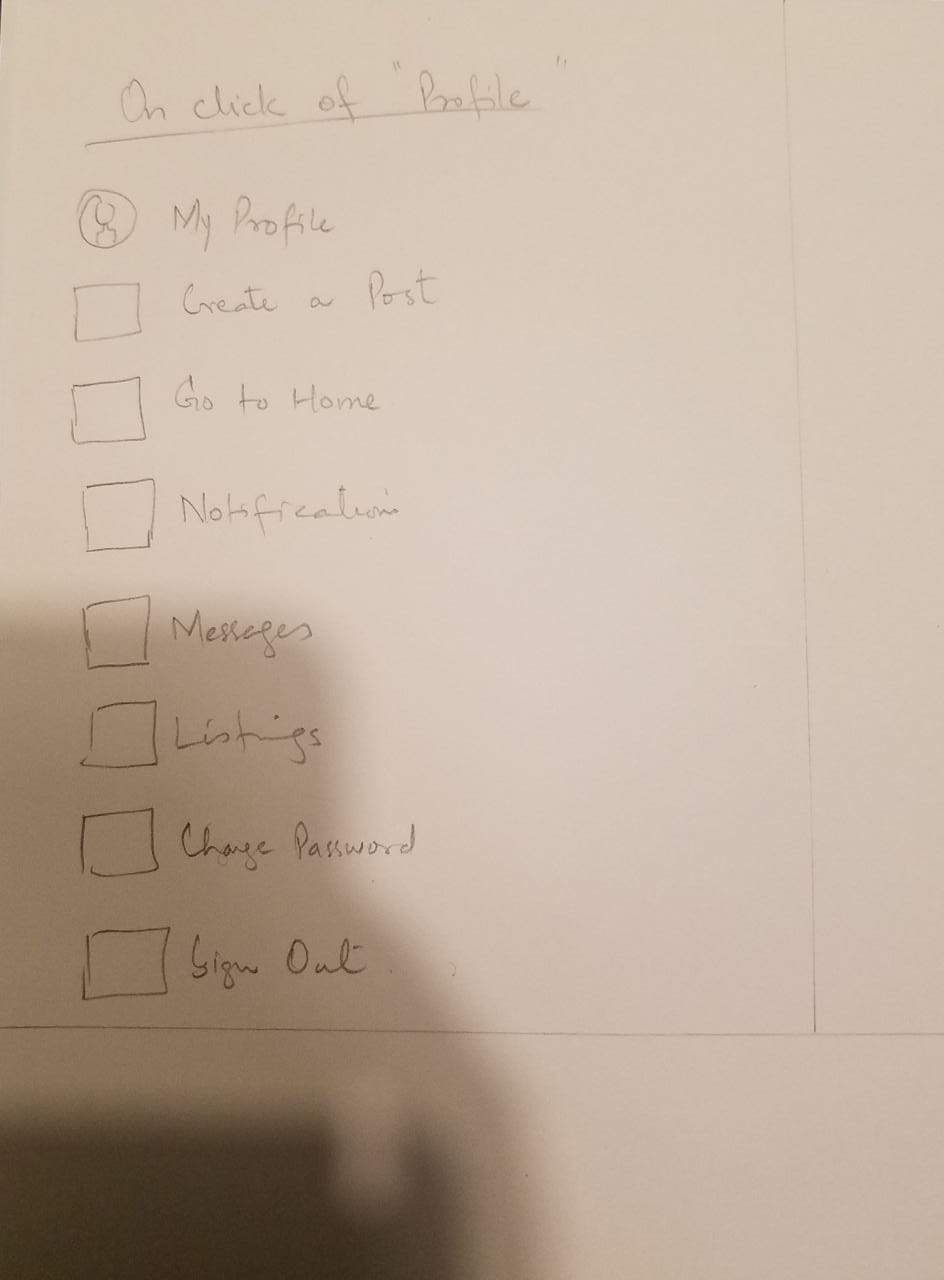 On click of "Profile"
My Profile
Create a Post
Go to Home
Notifications
Messages
Listings
Change Password
Sign Out